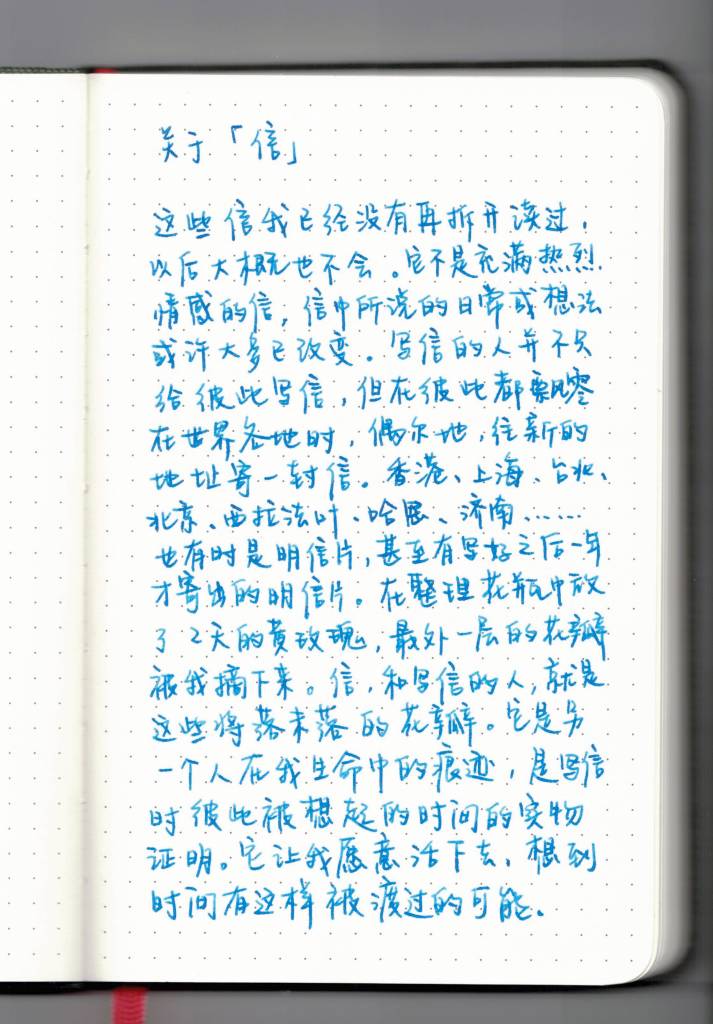 关于「信」
这些信我已经没有再拆开读过,
以后大概也不会。它不是充满热烈
情感的信,信中所说的日常或想法
或许大多已改变。写信的人并不只
给彼此写信,但在彼此都飘零
在世界各地时,偶尔地,往新的
地址寄一封信。香港、上海、台北、
北京、西拉法叶、哈恩、济南……
也有时是明信片,甚至有写好之后一年
才寄出的明信片。在整理花瓶中放
了2天的黄玫瑰,最外一层的花瓣
被我摘下来。信,和写信的人,就是
这些将落未落的花瓣。它是另
一个人在我生命中的痕迹,是写信
时彼此被想起的时间的实物
证明。它让我愿意活下去,想到
时间有这样被渡过的可能。